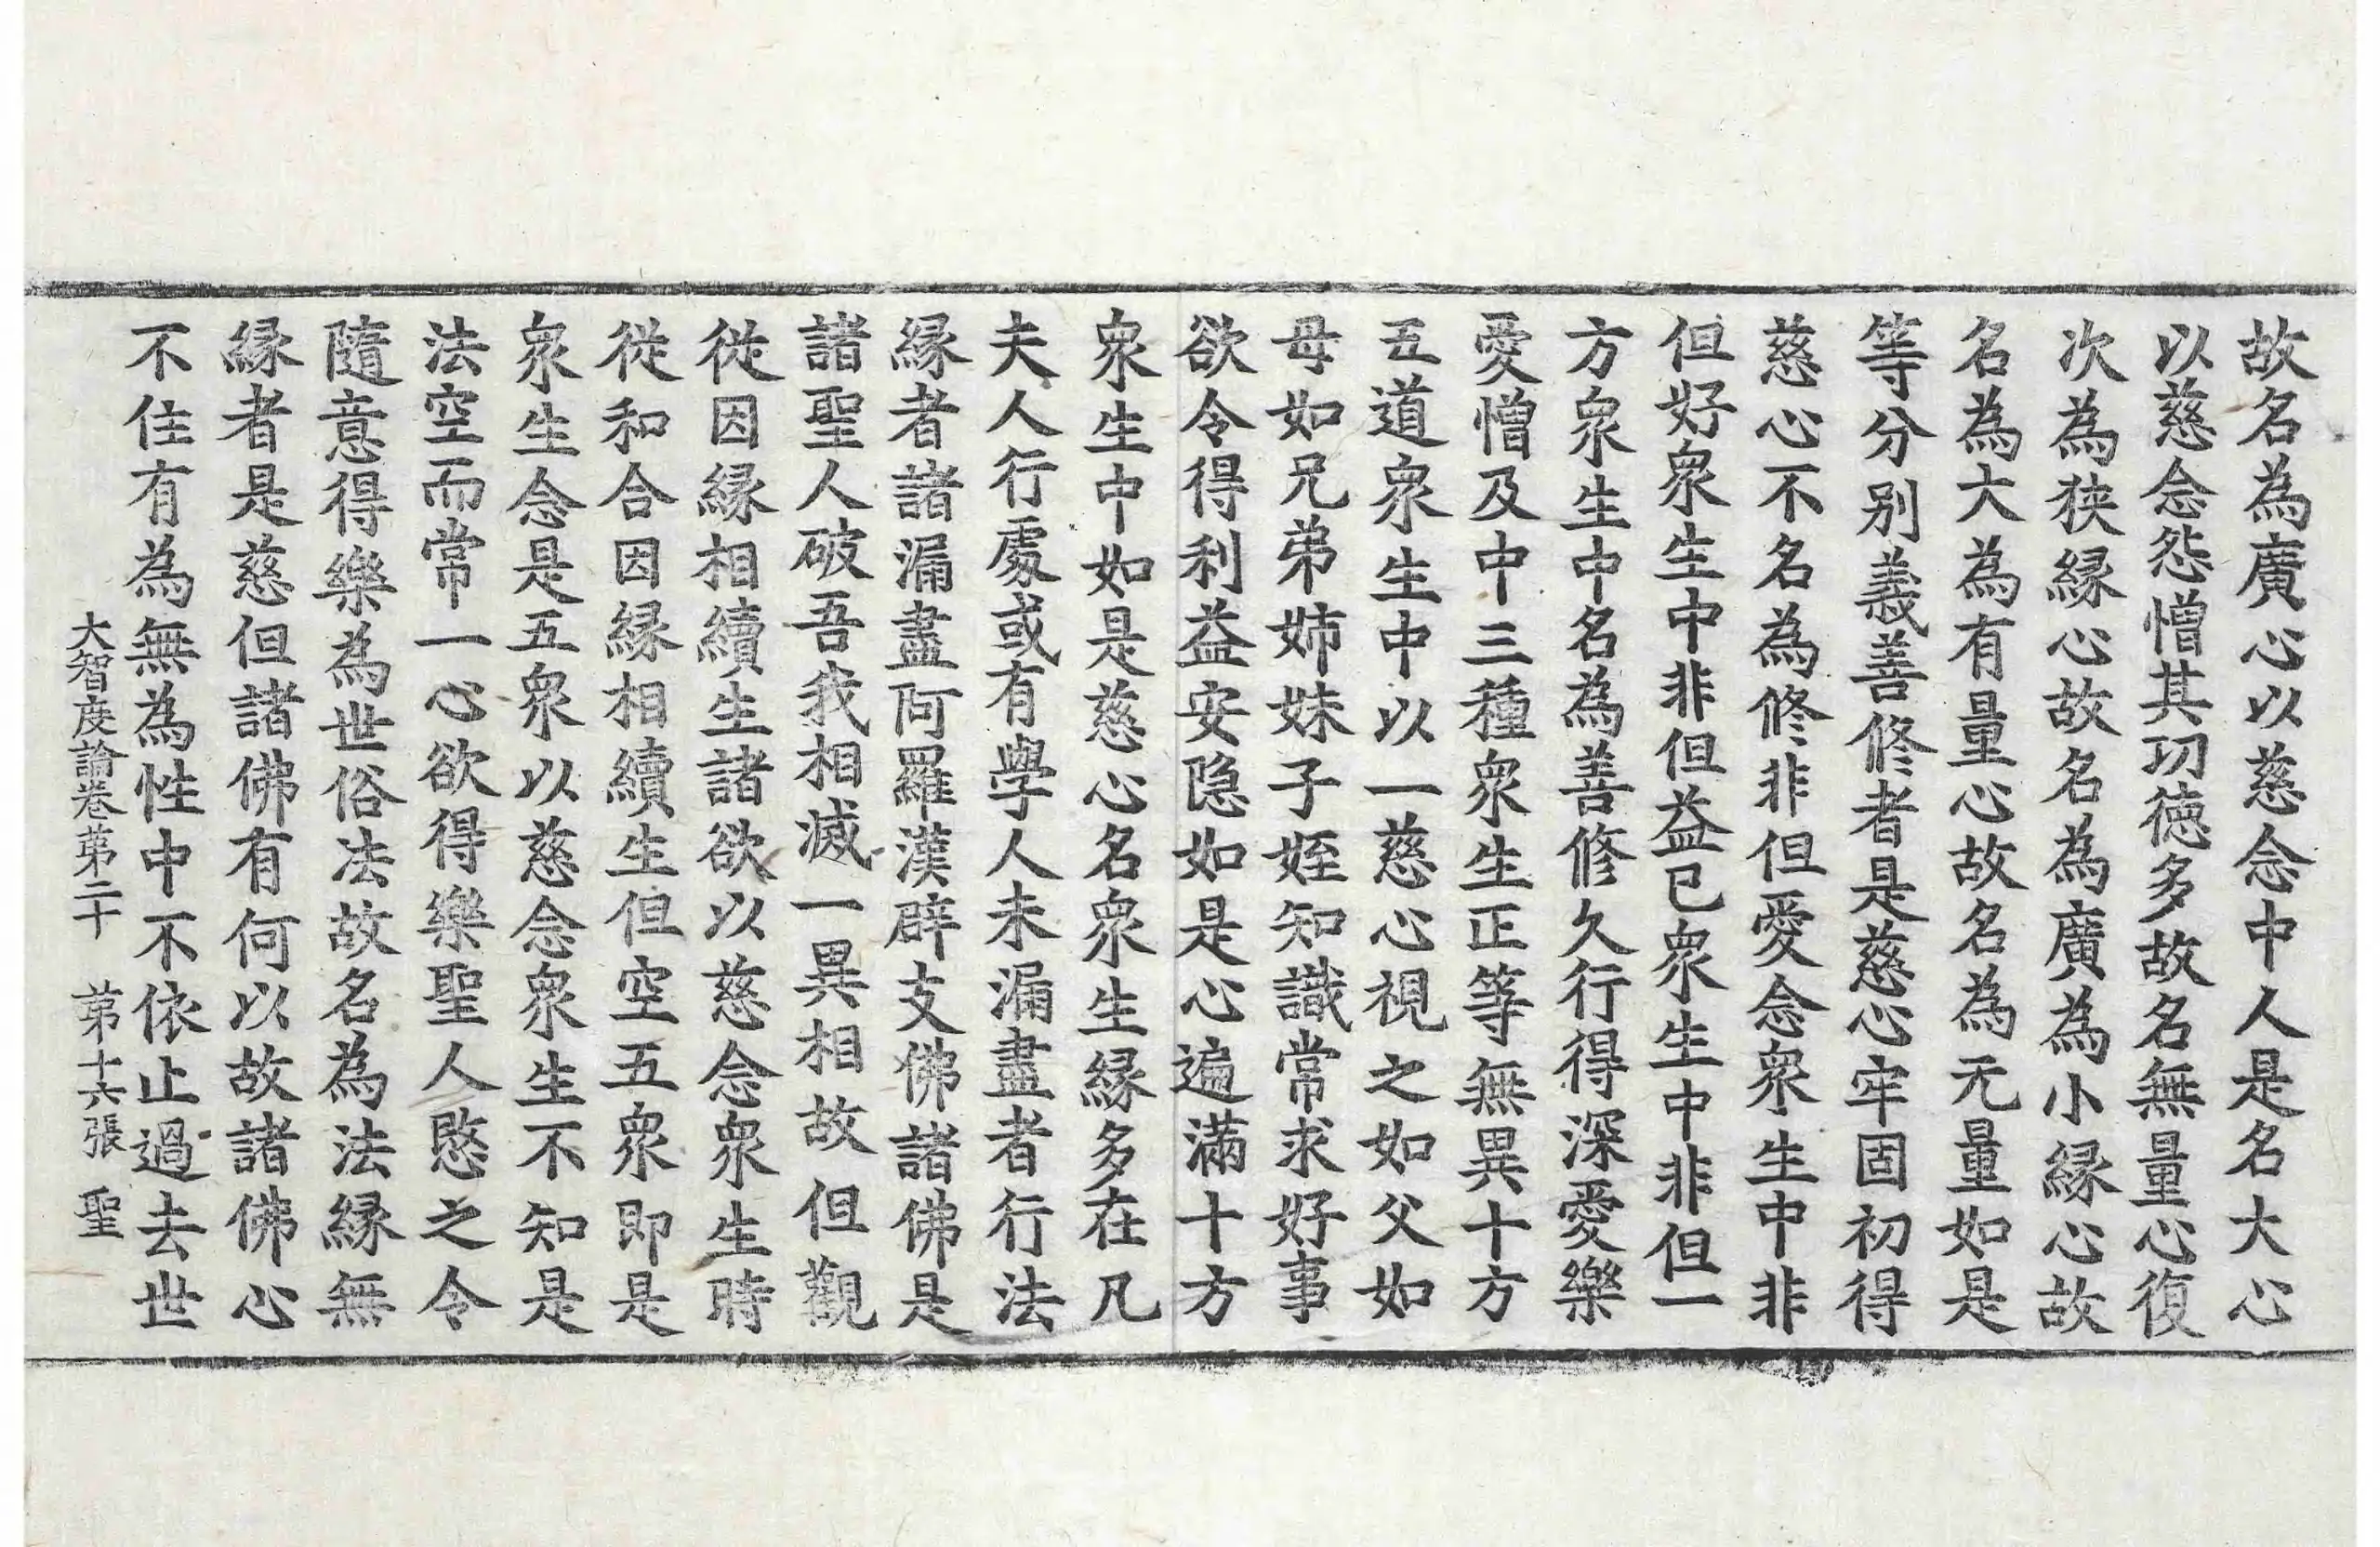 故名為廣心以慈念中人是名大心
以慈念怨憎其功德多故名無量心復
次為狹緣心故名為廣為小緣心故
名為大為有量心故名為无量如是
等分別義善修者是慈心牢固初得
慈心不名為修非但愛念眾生中非
但好眾生中非但益已眾生中非但一
方眾生中名為善修久行得深愛樂
愛憎及中三種眾生正等無異十方
五道眾生中以一慈心視之如父如
母如兄弟姉妹子姪知識常求好事
欲令得利益安隱如是心遍滿十方
眾生中如是慈心名眾生緣多在凡
夫人行處或有學人未漏盡者行法
緣者諸漏盡阿羅漢辟支佛諸佛是
諸聖人破吾我相滅一異相故但觀
從因緣相續生諸欲以慈念眾生時
從和合因緣相續生但空五眾即是
眾生念是五眾以慈念眾生不知是
法空而常一心欲得樂聖人愍之令
隨意得樂為世俗法故名為法緣無
緣者是慈但諸佛有何以故諸佛心
不住有為無為性中不依止過去世
大智度論卷第二十 第十六張 聖